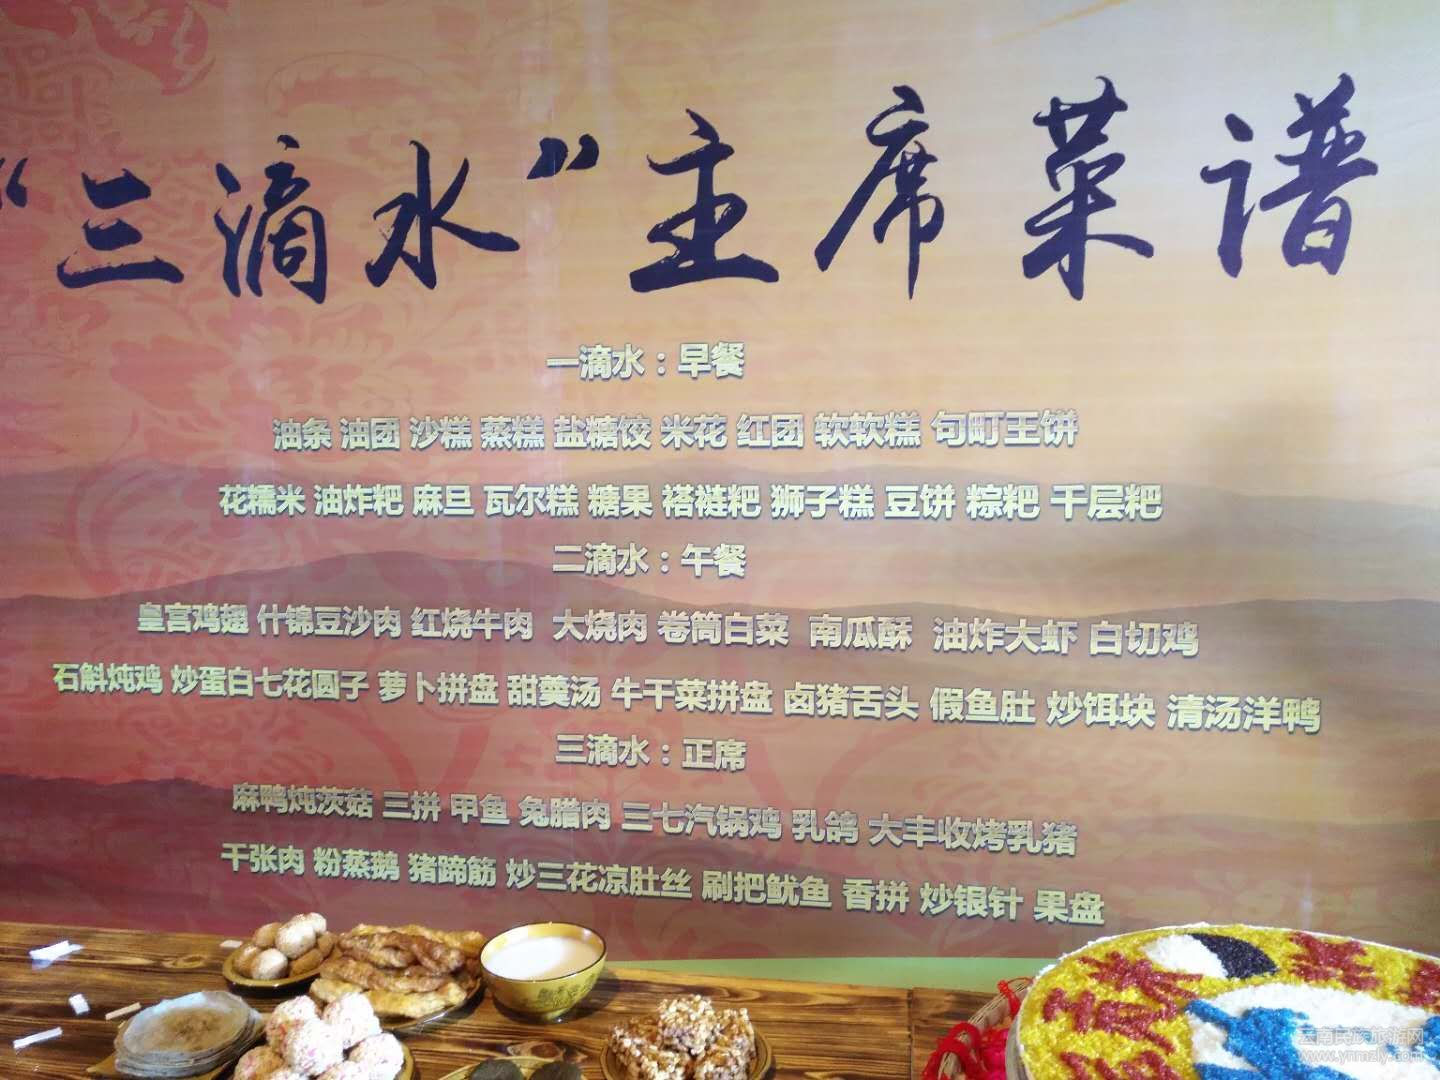 “三滴水”主席菜谱
一滴水：早餐
油条 油团 沙糕 蒸糕 盐糖饺 米花 红团 软软糕 句町王饼
花糯米 油炸粑 麻旦 瓦尔糕 糖果 褡裢粑 狮子糕 豆饼 粽粑 千层粑
二滴水：午餐
皇宫鸡翅 什锦豆沙肉 红烧牛肉 大烧肉 卷筒白菜 南瓜酥 油炸大虾 白切鸡
石斛炖鸡 炒蛋白七花圆子 萝卜拼盘 甜羹汤 牛干菜拼盘 卤猪舌头 假鱼肚 炒饵块 清汤洋鸭
三滴水：正席
麻鸭炖茨菇 三拼 甲鱼 兔腊肉 三七汽锅鸡 乳鸽 大丰收烤乳猪
干张肉 粉蒸鹅 猪蹄筋 炒三花凉肚丝 刷把鱿鱼 香拼 炒银针 果盘
云南民族旅游网
www.ynmzly.com